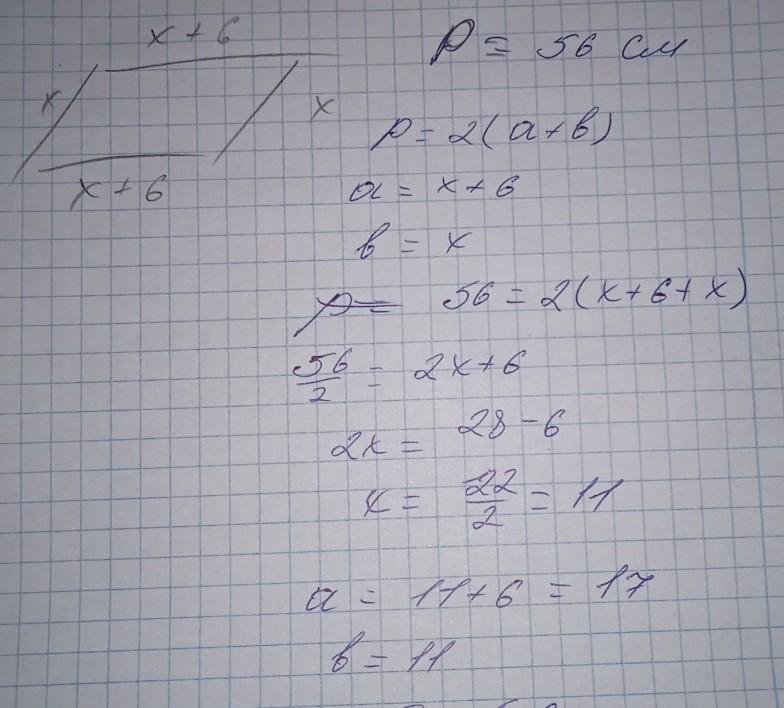 x + 6
x
x
x + 6
P = 56 см
p = 2(a+b)
a = x + 6
b = x
56 = 2(x+6+x)
56/2 = 2x+6
2x = 28-6
x = 22/2 = 11
a = 11+6 = 17
b = 11